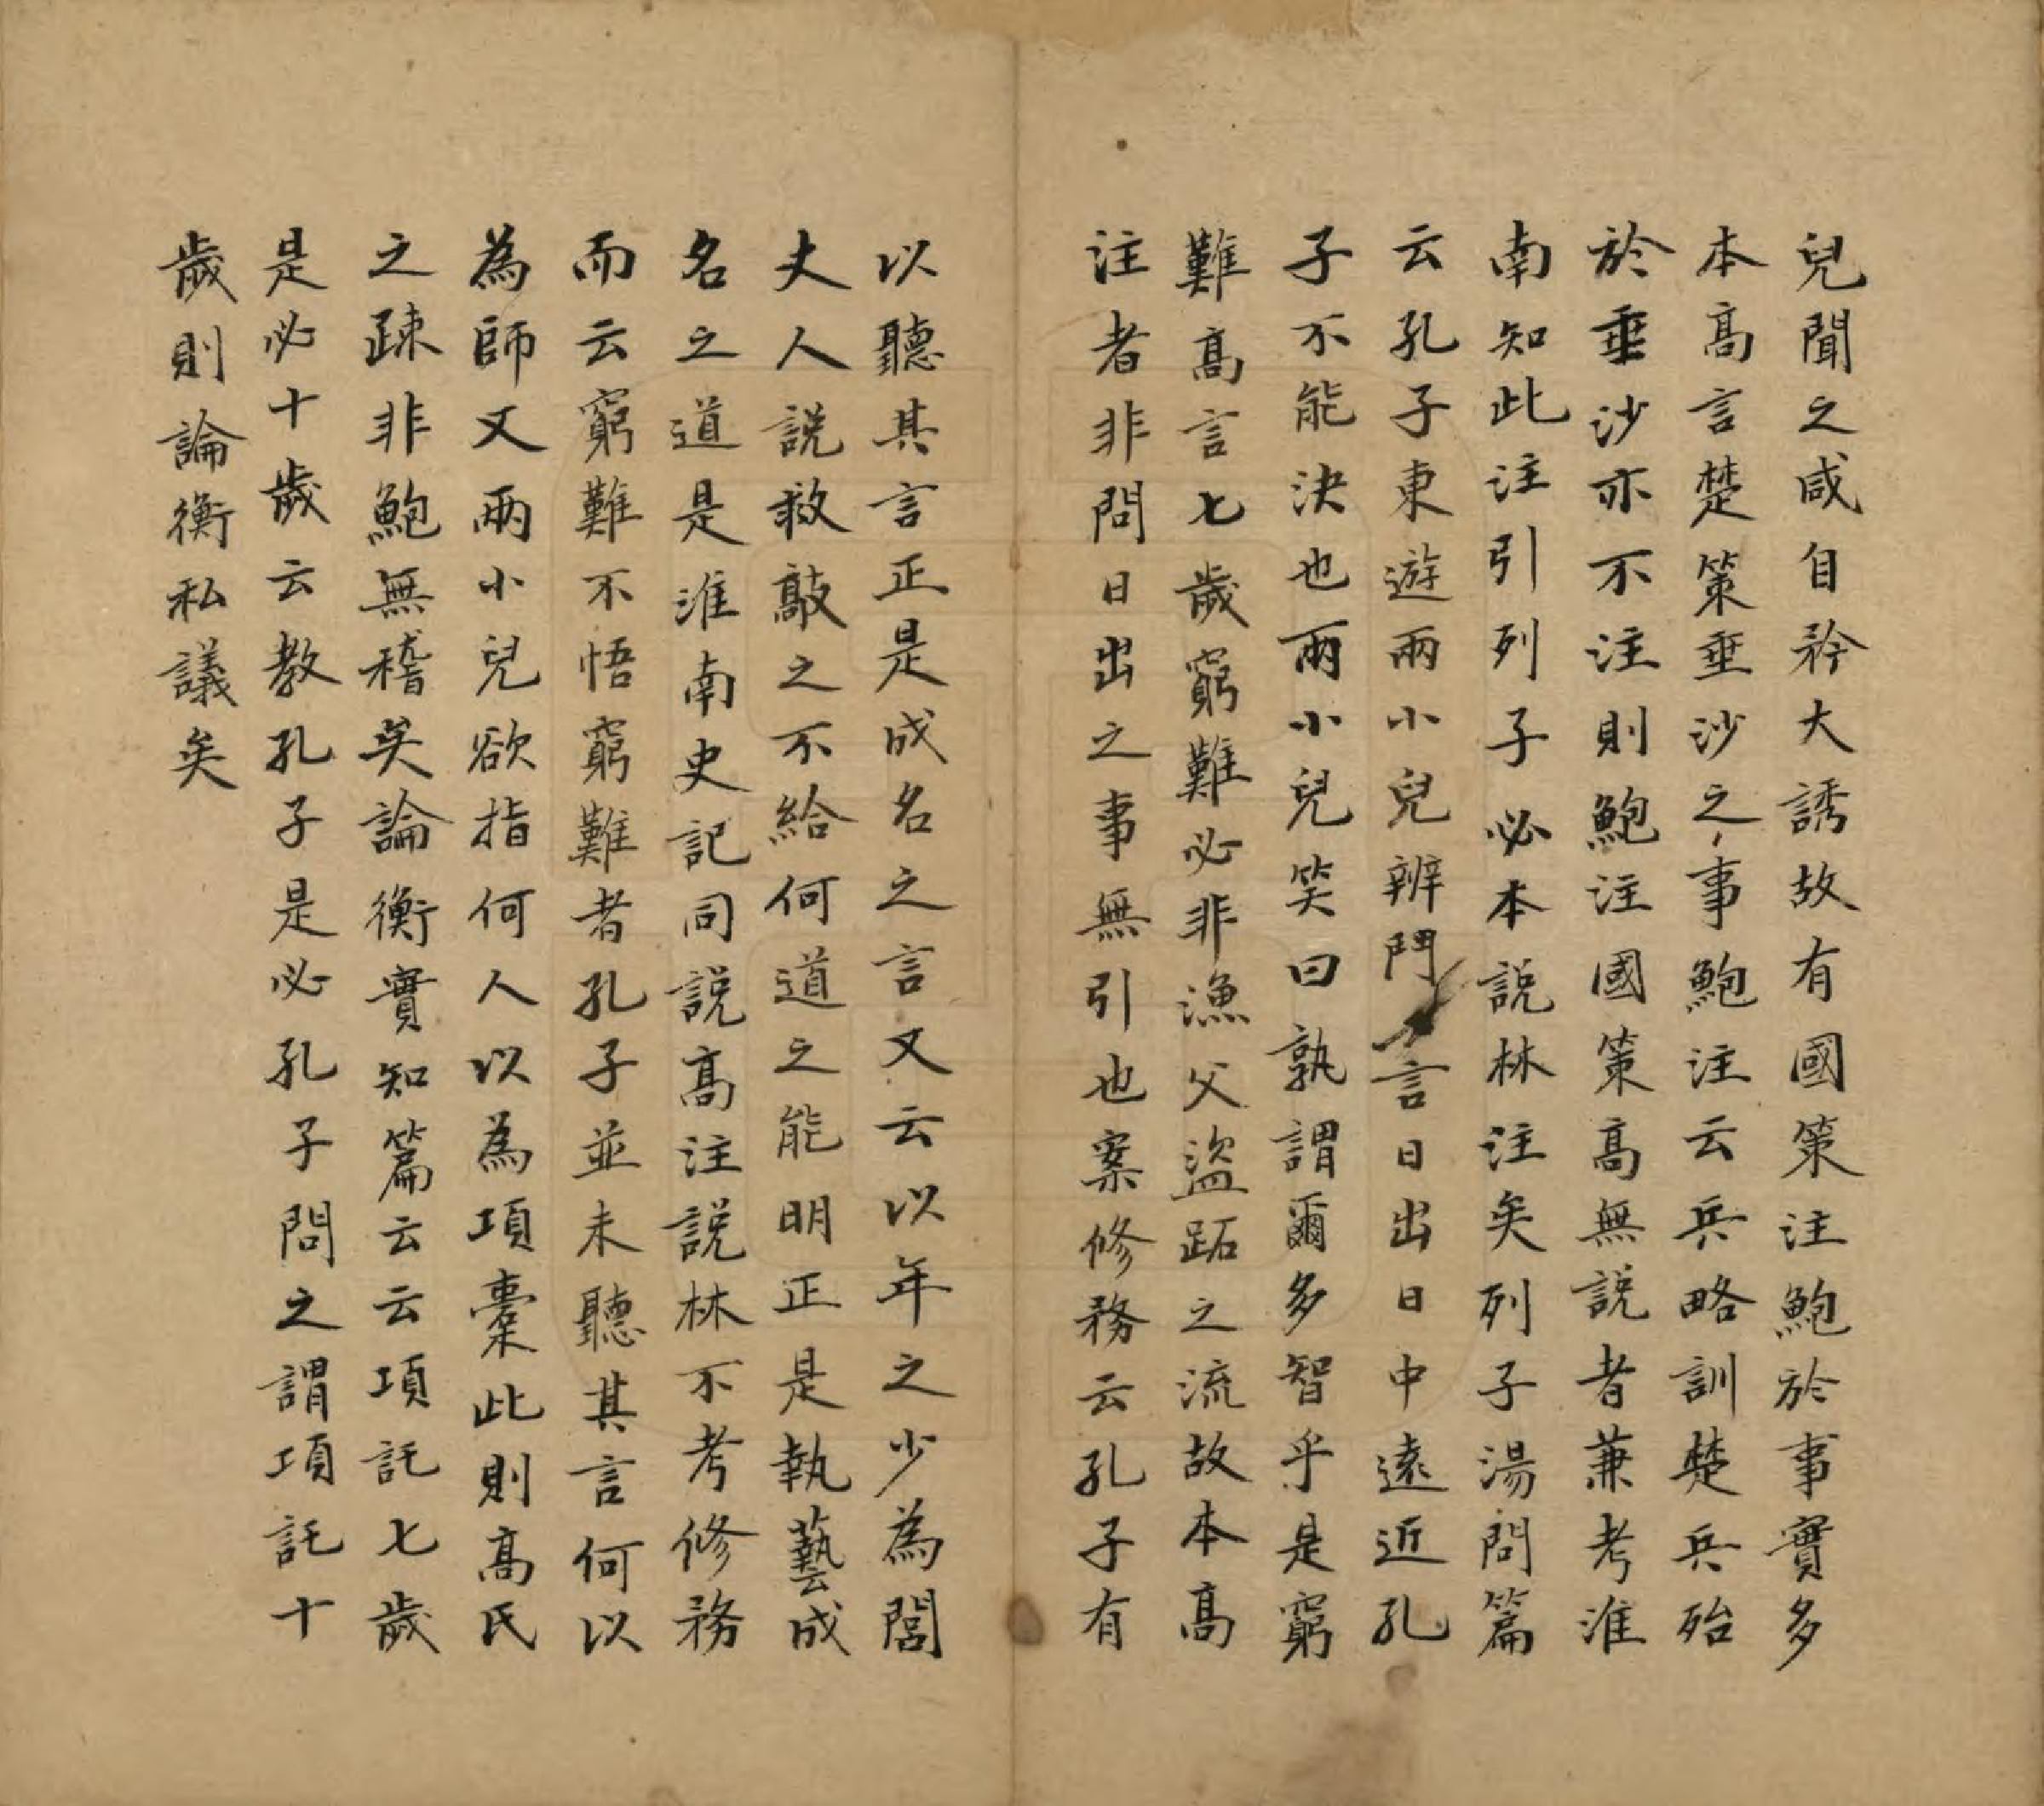 兒聞之咸自矜大誘故有國策注鮑於事實多
本高言楚策垂沙之事鮑注云兵略訓楚兵殆
於垂沙亦不注則鮑注國策高無說者兼考淮
南知此注引列子必本說林注矣列子湯問篇
云孔子東遊兩小兒辨鬥言日出日中遠近孔
子不能決也兩小兒笑曰孰謂爾多智乎是窮
難高言七歲窮難難必非漁父盜跖之流故本高
注者非問日出之事無引也案修務云孔子有
以聽其言正是成名之言又云以年之少為閭
丈人說救敲之不給何道之能明正是執藝成
名之道是淮南史記同說高注說林不考修務
而云窮難不悟窮難者孔子並未聽其言何以
為師又兩小兒欲指何人以為項橐此則高氏
之疎非鮑無稽矣論衡實知篇云云項託七歲
是必十歲云教孔子是必孔子問之謂項託十
歲則論衡私議矣